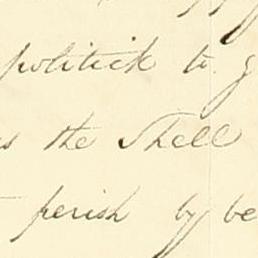 politick to
the Shell
perish by be